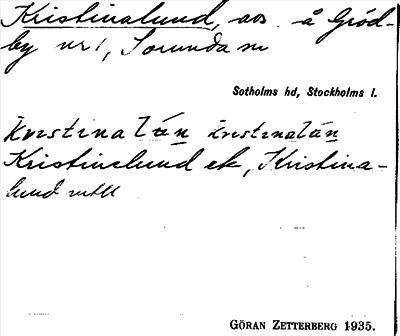 Kristinalund, avs. å Gröd-
by nr 1, Sorunda sn
Sotholms hd, Stockholms l.
kristinalún kristinalún
Kristinelund ek, Kristina-
lund
GÖRAN ZETTERBERG 1935.